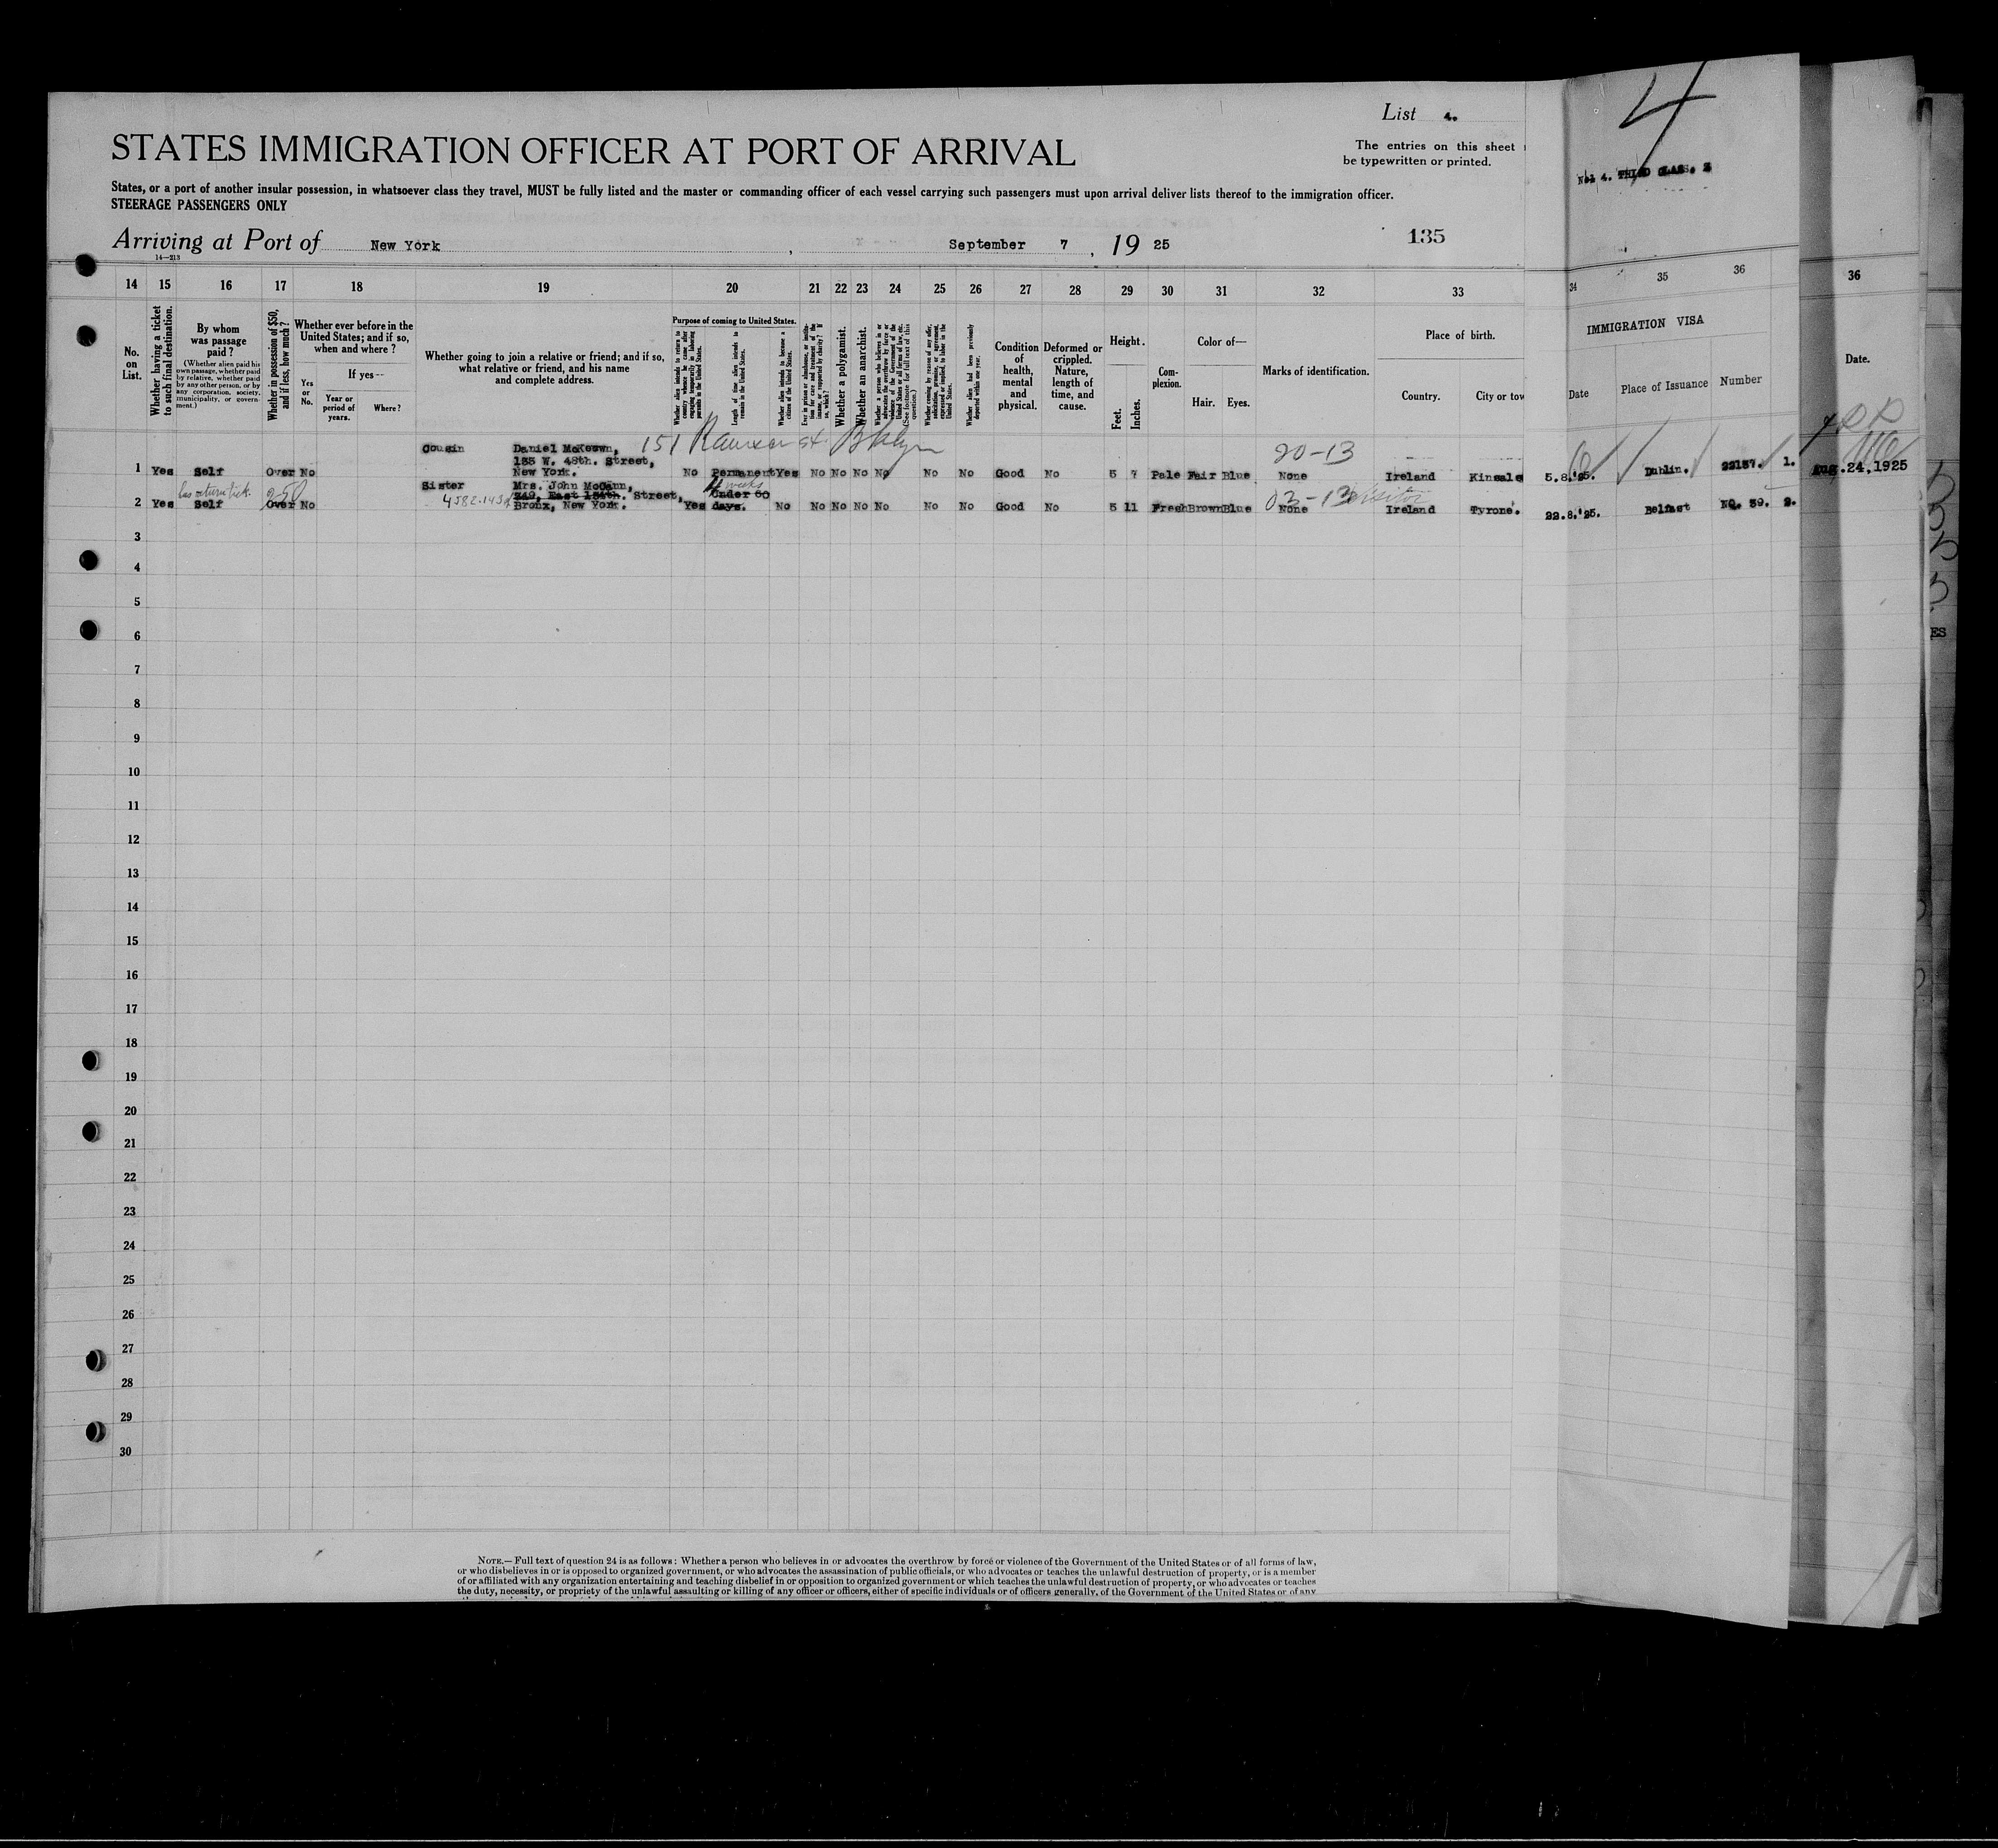 List 4.
STATES IMMIGRATION OFFICER AT PORT OF ARRIVAL
The entries on this sheet
be typewritten or printed.
States, or a port of another insular possession, in whatsoever class they travel, MUST be fully listed and the master or commanding officer of each vessel carrying such passengers must upon arrival deliver lists thereof to the immigration officer.
STEERAGE PASSENGERS ONLY
Arriving at Port of New York, September 7, 19 25
135
14—213
4
14 15 16 17 18 19 20 21 22 23 24 25 26 27 28 29 30 31 32 33 34 35 36
36
No. on List.
Whether having a ticket to such final destination.
By whom was passage paid?
(Whether alien paid his own passage, whether paid by relative, whether paid by any other person, or by any corporation, society, municipality, or government.)
Whether in possession of $50, and if less, how much?
Whether ever before in the United States; and if so, when and where?
If yes—
Yes or No.
Year or period of years.
Where?
Whether going to join a relative or friend; and if so, what relative or friend, and his name and complete address.
Purpose of coming to United States.
Whether alien intends to return to country whence he came after engaging temporarily in laboring pursuits in the United States.
Length of time alien intends to remain in the United States.
Whether alien intends to become a citizen of the United States.
Ever in prison or almshouse, or institution for care and treatment of the insane, or supported by charity? If so, which?
Whether a polygamist.
Whether an anarchist.
Whether a person who believes in or advocates the overthrow by force or violence of the Government of the United States or all forms of law, etc. (See footnote for full text of this question.)
Whether coming by reason of any offer, solicitation, promise, or agreement, expressed or implied, to labor in the United States.
Whether alien had been previously deported within one year.
Condition of health, mental and physical.
Deformed or crippled. Nature, length of time, and cause.
Height.
Feet.
Inches.
Complexion.
Color of—
Hair. Eyes.
Marks of identification.
Place of birth.
Country. City or tow
IMMIGRATION VISA
Date
Place of Issuance
Number
Date.
Cousin Daniel McKeown, 151 st. Bklyn 20-13
135 W. 48th. Street,
1 Yes Self Over No New York. No Permanent Yes No No No No No No Good No 5 7 Pale Fair Blue None Ireland Kinsale 5.8.'25. Dublin. 22157. 1. Aug.24,1925
has return tick. 250 Sister Mrs. John McCann, 4 weeks
249, East 184th. Street, Under 60 03-13 visitor
2 Yes Self Over No Bronx, New York. Yes days. No No No No No No No Good No 5 11 Fresh Brown Blue None Ireland Tyrone. 22.8.'25. Belfast NQ. 39. 2.
3
4
5
6
7
8
9
10
11
12
13
14
15
16
17
18
19
20
21
22
23
24
25
26
27
28
29
30
ES
NOTE.—Full text of question 24 is as follows: Whether a person who believes in or advocates the overthrow by force or violence of the Government of the United States or of all forms of law,
or who disbelieves in or is opposed to organized government, or who advocates the assassination of public officials, or who advocates or teaches the unlawful destruction of property, or is a member
of or affiliated with any organization entertaining and teaching disbelief in or opposition to organized government or which teaches the unlawful destruction of property, or who advocates or teaches
the duty, necessity, or propriety of the unlawful assaulting or killing of any officer or officers, either of specific individuals or of officers generally, of the Government of the United States or of any